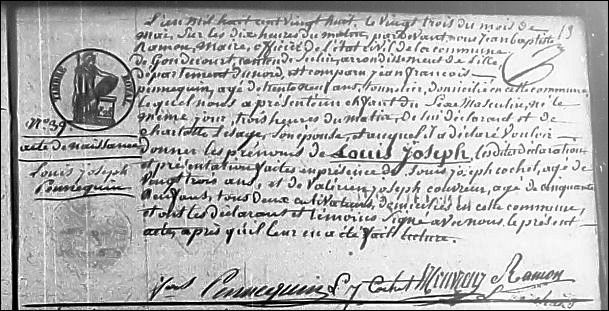 L'an mil huit cent vingt huit, le vingt trois du mois de
mai, sur les dix heures du matin, par devant nous jean baptiste
Ramon, Maire, officier de l'état civil de la commune
de Gondecourt, canton de Seclin, arrondissement de Lille,
département du nord, est comparu jean francois
pennequin, agé de trente neuf ans, domicilié en cette commune,
lequel nous a présenté un enfant du Sexe Masculin, né le
même jour, trois heures du matin, de lui déclarant et de
charlotte Lesage, son épouse, et auquel il a déclaré vouloir
donner les prénoms de Louis joseph, les dites déclaration
et présentation faites en présence de Louis joseph cochet, agé de
Vingt trois ans, et de Valérien joseph couvreur, agé de cinquante
neuf ans, tous deux cultivateurs, domiciliés en cette commune,
et ont les déclarant et témoins signé avec nous le présent
acte, après qu'il leur en a été fait lecture.
TIMBRE ROYAL
N° 39.
acte de naissance
Louis joseph
Pennequin
Pennequin L. j Cochet Ramon